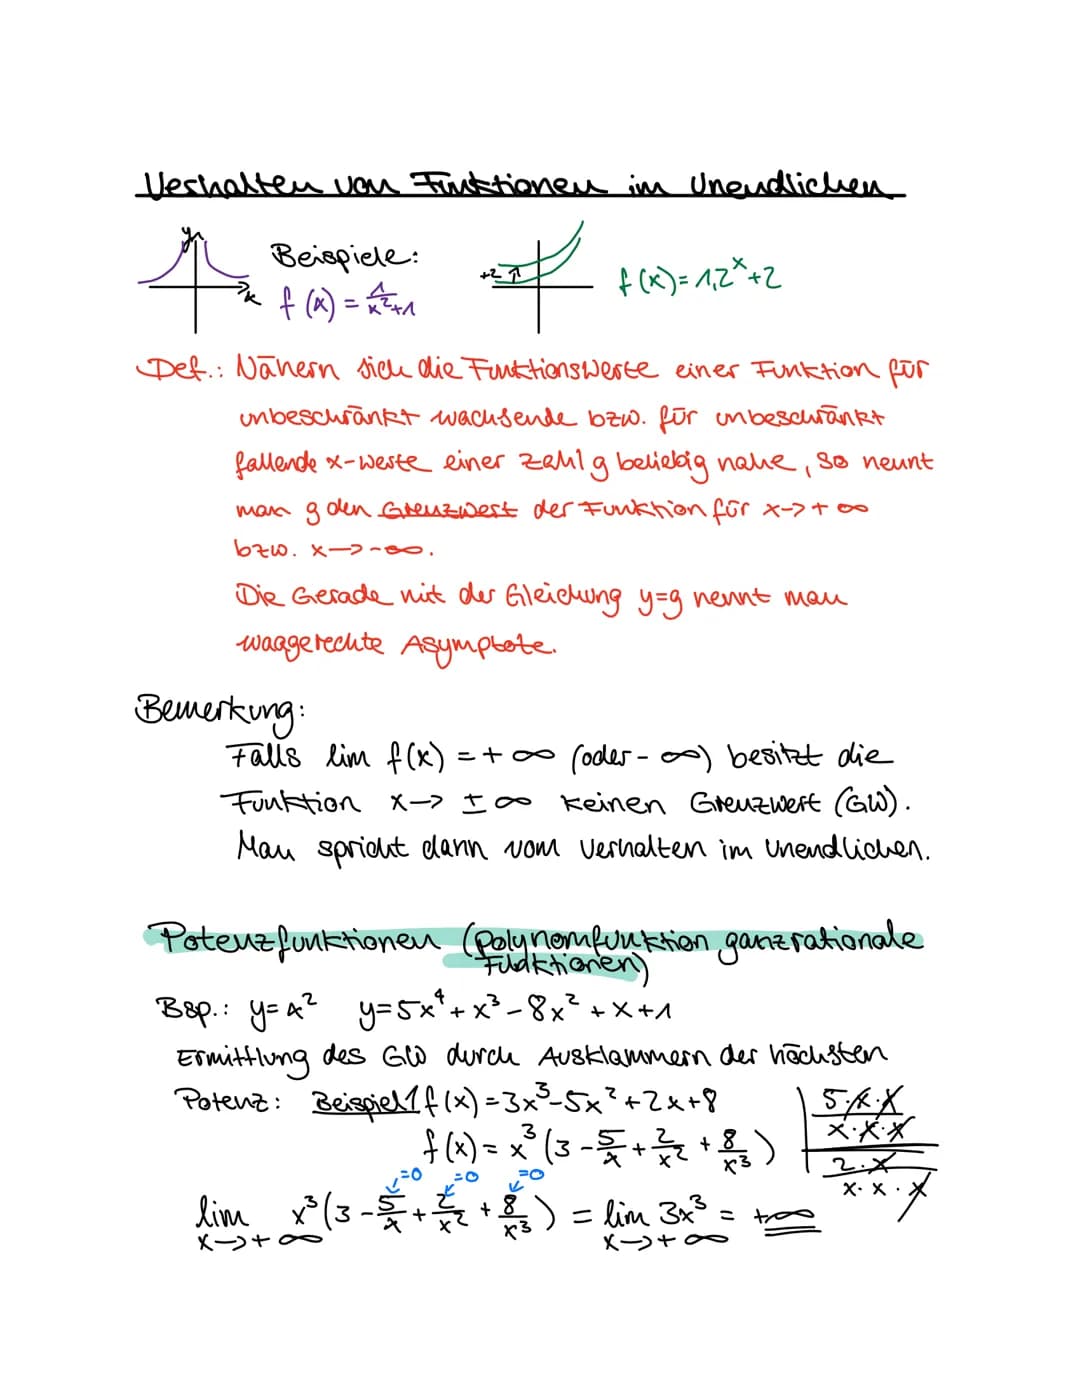 Verhalten von Funktionen im Unendlichen
y
x
Beispiele:
f(x) = 1/(x²+1)
+2 ↑
f(x) = 1,2^x + 2
Def.: Nähern sich die Funktionswerte einer Funktion für
unbeschränkt wachsende bzw. für unbeschränkt
fallende x-Werte einer Zahl g beliebig nahe, so nennt
man g den Grenzwert der Funktion für x->+∞
bzw. x->-∞.
Die Gerade mit der Gleichung y=g nennt man
waagerechte Asymptote.
Bemerkung:
Falls lim f(x) = +∞ (oder -∞) besitzt die
Funktion x-> ±∞ keinen Grenzwert (GW).
Man spricht dann vom Verhalten im Unendlichen.
Potenzfunktionen (Polynomfunktion ganzrationale
Funktionen)
Bsp.: y=x² y=5x⁴+x³-8x²+x+1
Ermittlung des GW durch Ausklammern der höchsten
Potenz: Beispiel 1 f(x)=3x³-5x²+2x+8
f(x)=x³(3-5/x+2/x²+8/x³)
5·x·x
x·x·x
2·x
x·x·x
=0 =0 =0
lim x³(3-5/x+2/x²+8/x³) = lim 3x³ = +∞
x->+∞ x->+∞